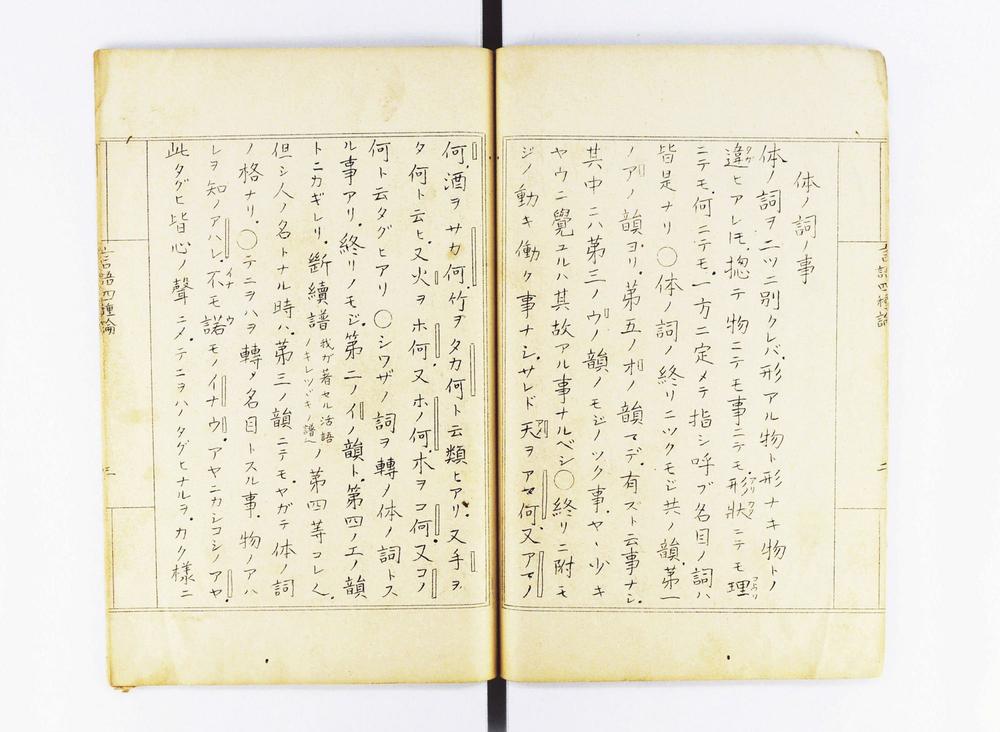 体ノ詞ノ事
体ノ詞ヲ二ツニ別クレバ、形アル物ト形ナキ物トノ
違ヒアレ𪜈、惣テ物ニテモ事ニテモ、形狀ニテモ理
ニテモ、何ニテモ、一方ニ定メテ指シ呼ブ名目ノ詞ハ
皆是ナリ ○体ノ詞ノ終リニツクモジ共ノ韻、第一
ノアノ韻ヨリ、第五ノオノ韻マデ、有ズト云事ナシ、
其中ニハ第三ノウノ韻ノモジノツク事、ヤヽ少キ
ヤウニ覺ユルハ其故アル事ナルベシ ○終リニ附モ
ジノ動キ働ク事ナシ、サレド天ヲアマ何、又アマノ
何、酒ヲサカ何竹ヲタカ何ト云類ヒアリ、又手ヲ
タ何ト云ヒ、又火ヲホ何又ホノ何、木ヲコ何、又コノ
何ト云タグヒアリ ○シワザノ詞ヲ轉ノ体ノ詞トス
ル事アリ、終リノモジ、第二ノイノ韻ト、第四ノエノ韻
トニカギレリ、斷續譜我ガ著セル活語ノキレツヾキノ譜ノ第四等コレ
但シ人ノ名トナル時ハ、第三ノ韻ニテモ、ヤガテ体ノ詞
ノ格ナリ、○テニヲハヲ轉メ名目トスル事、物ノアハ
レヲ知ノアハレ、不モ諾モノイナウ、アヤニカシコシノアヤ、
此タグヒ皆心ノ聲ニメ、テニヲハノタグヒナルヲ、カク樣ニ
言語四種論
二
言語四種論
三